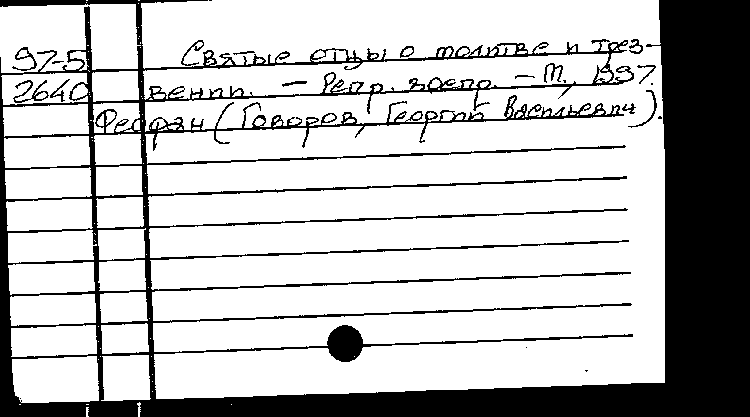 97-5 Святые отцы о молитве и трез-
2640 вении. — Репр. воспр. — М., 1997.
Феофан (Говоров, Георгий Васильевич).